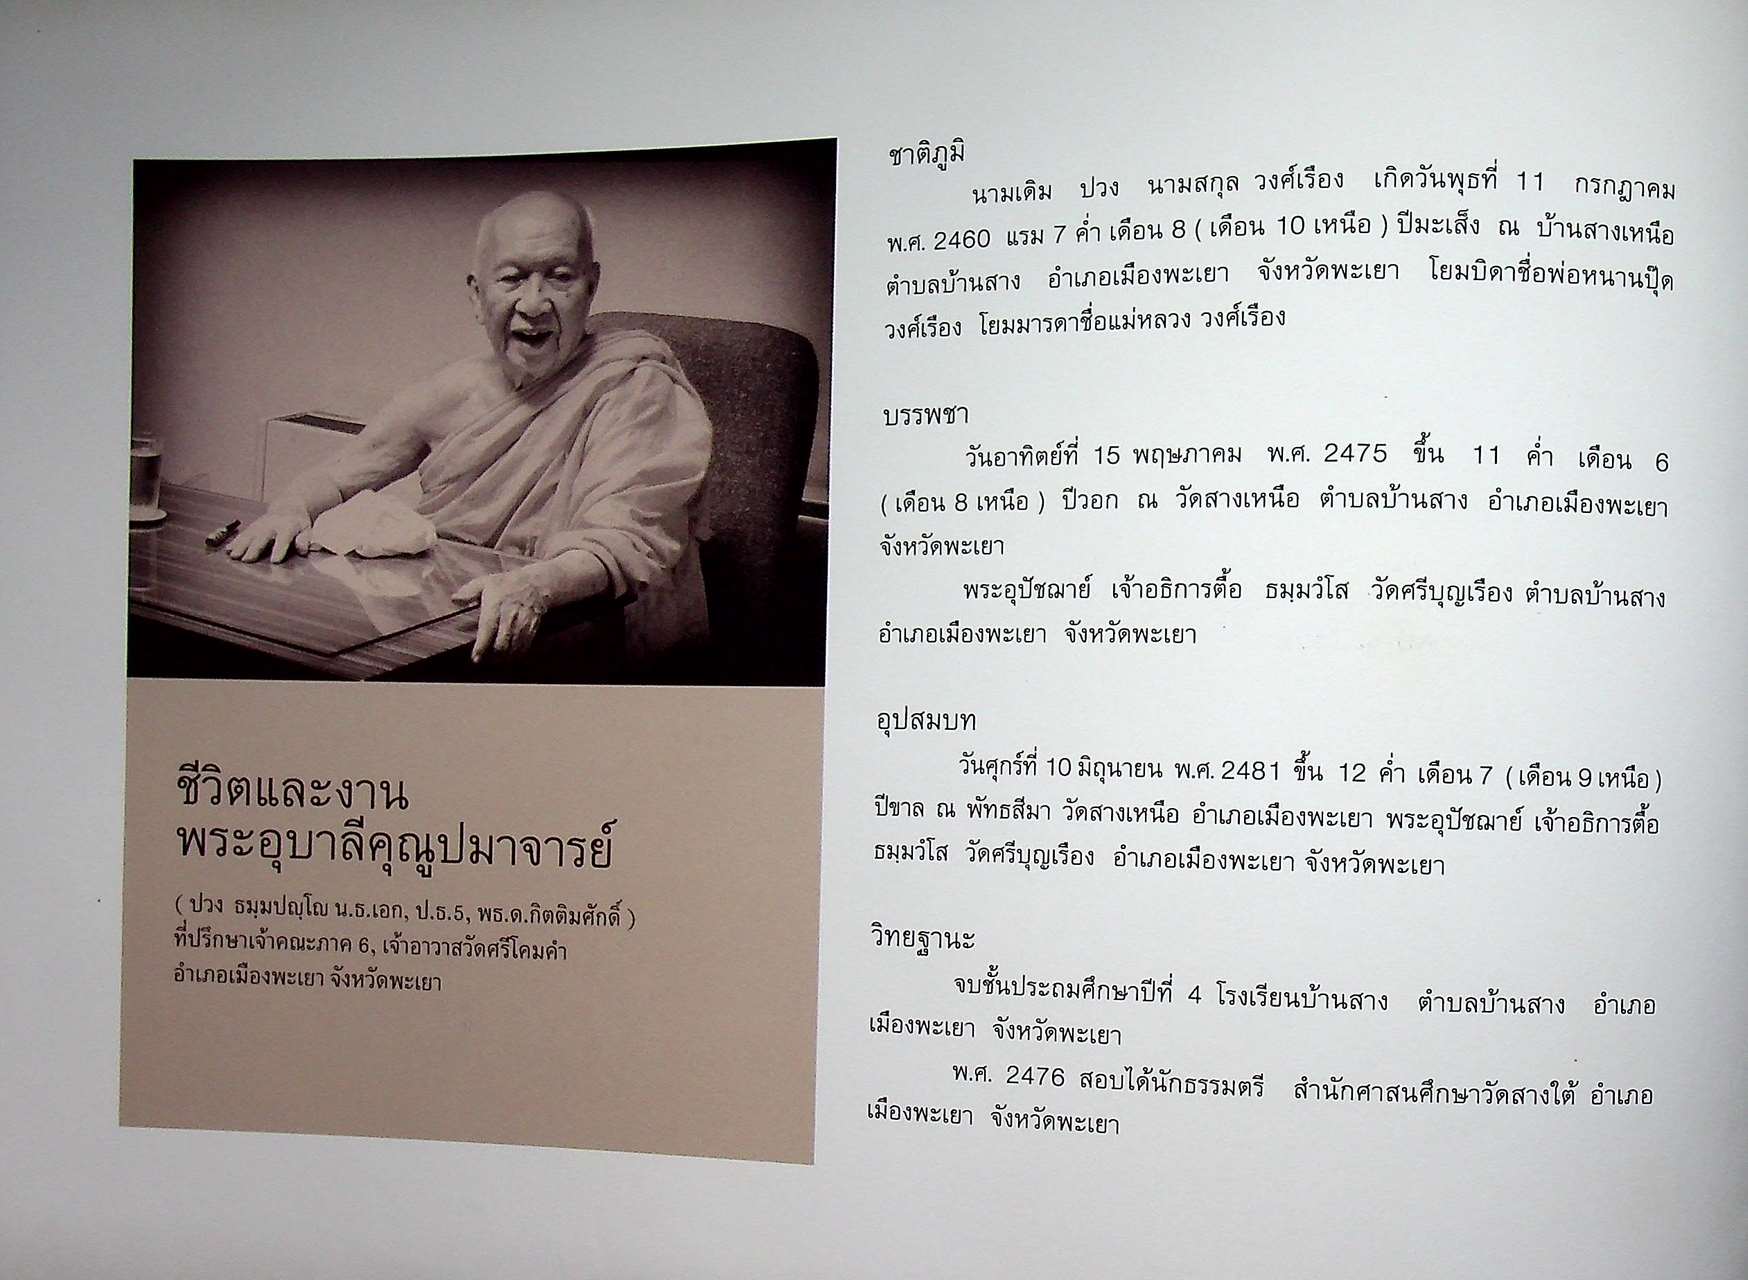 ชีวิตและงาน
พระอุบาลีคุณูปมาจารย์
( ปวง ธมฺมปญฺโญ น.ธ.เอก, ป.ธ.5, พธ.ด.กิตติมศักดิ์ )
ที่ปรึกษาเจ้าคณะภาค 6, เจ้าอาวาสวัดศรีโคมคำ
อำเภอเมืองพะเยา จังหวัดพะเยา
ชาติภูมิ
นามเดิม ปวง นามสกุล วงศ์เรือง เกิดวันพุธที่ 11 กรกฎาคม
พ.ศ. 2460 แรม 7 ค่ำ เดือน 8 ( เดือน 10 เหนือ ) ปีมะเส็ง ณ บ้านสางเหนือ
ตำบลบ้านสาง อำเภอเมืองพะเยา จังหวัดพะเยา โยมบิดาชื่อพ่อหนานปุ๊ด
วงศ์เรือง โยมมารดาชื่อแม่หลวง วงศ์เรือง
บรรพชา
วันอาทิตย์ที่ 15 พฤษภาคม พ.ศ. 2475 ขึ้น 11 ค่ำ เดือน 6
( เดือน 8 เหนือ ) ปีวอก ณ วัดสางเหนือ ตำบลบ้านสาง อำเภอเมืองพะเยา
จังหวัดพะเยา
พระอุปัชฌาย์ เจ้าอธิการตื้อ ธมฺมวํโส วัดศรีบุญเรือง ตำบลบ้านสาง
อำเภอเมืองพะเยา จังหวัดพะเยา
อุปสมบท
วันศุกร์ที่ 10 มิถุนายน พ.ศ. 2481 ขึ้น 12 ค่ำ เดือน 7 ( เดือน 9 เหนือ )
ปีขาล ณ พัทธสีมา วัดสางเหนือ อำเภอเมืองพะเยา พระอุปัชฌาย์ เจ้าอธิการตื้อ
ธมฺมวํโส วัดศรีบุญเรือง อำเภอเมืองพะเยา จังหวัดพะเยา
วิทยฐานะ
จบชั้นประถมศึกษาปีที่ 4 โรงเรียนบ้านสาง ตำบลบ้านสาง อำเภอ
เมืองพะเยา จังหวัดพะเยา
พ.ศ. 2476 สอบได้นักธรรมตรี สำนักศาสนศึกษาวัดสางใต้ อำเภอ
เมืองพะเยา จังหวัดพะเยา